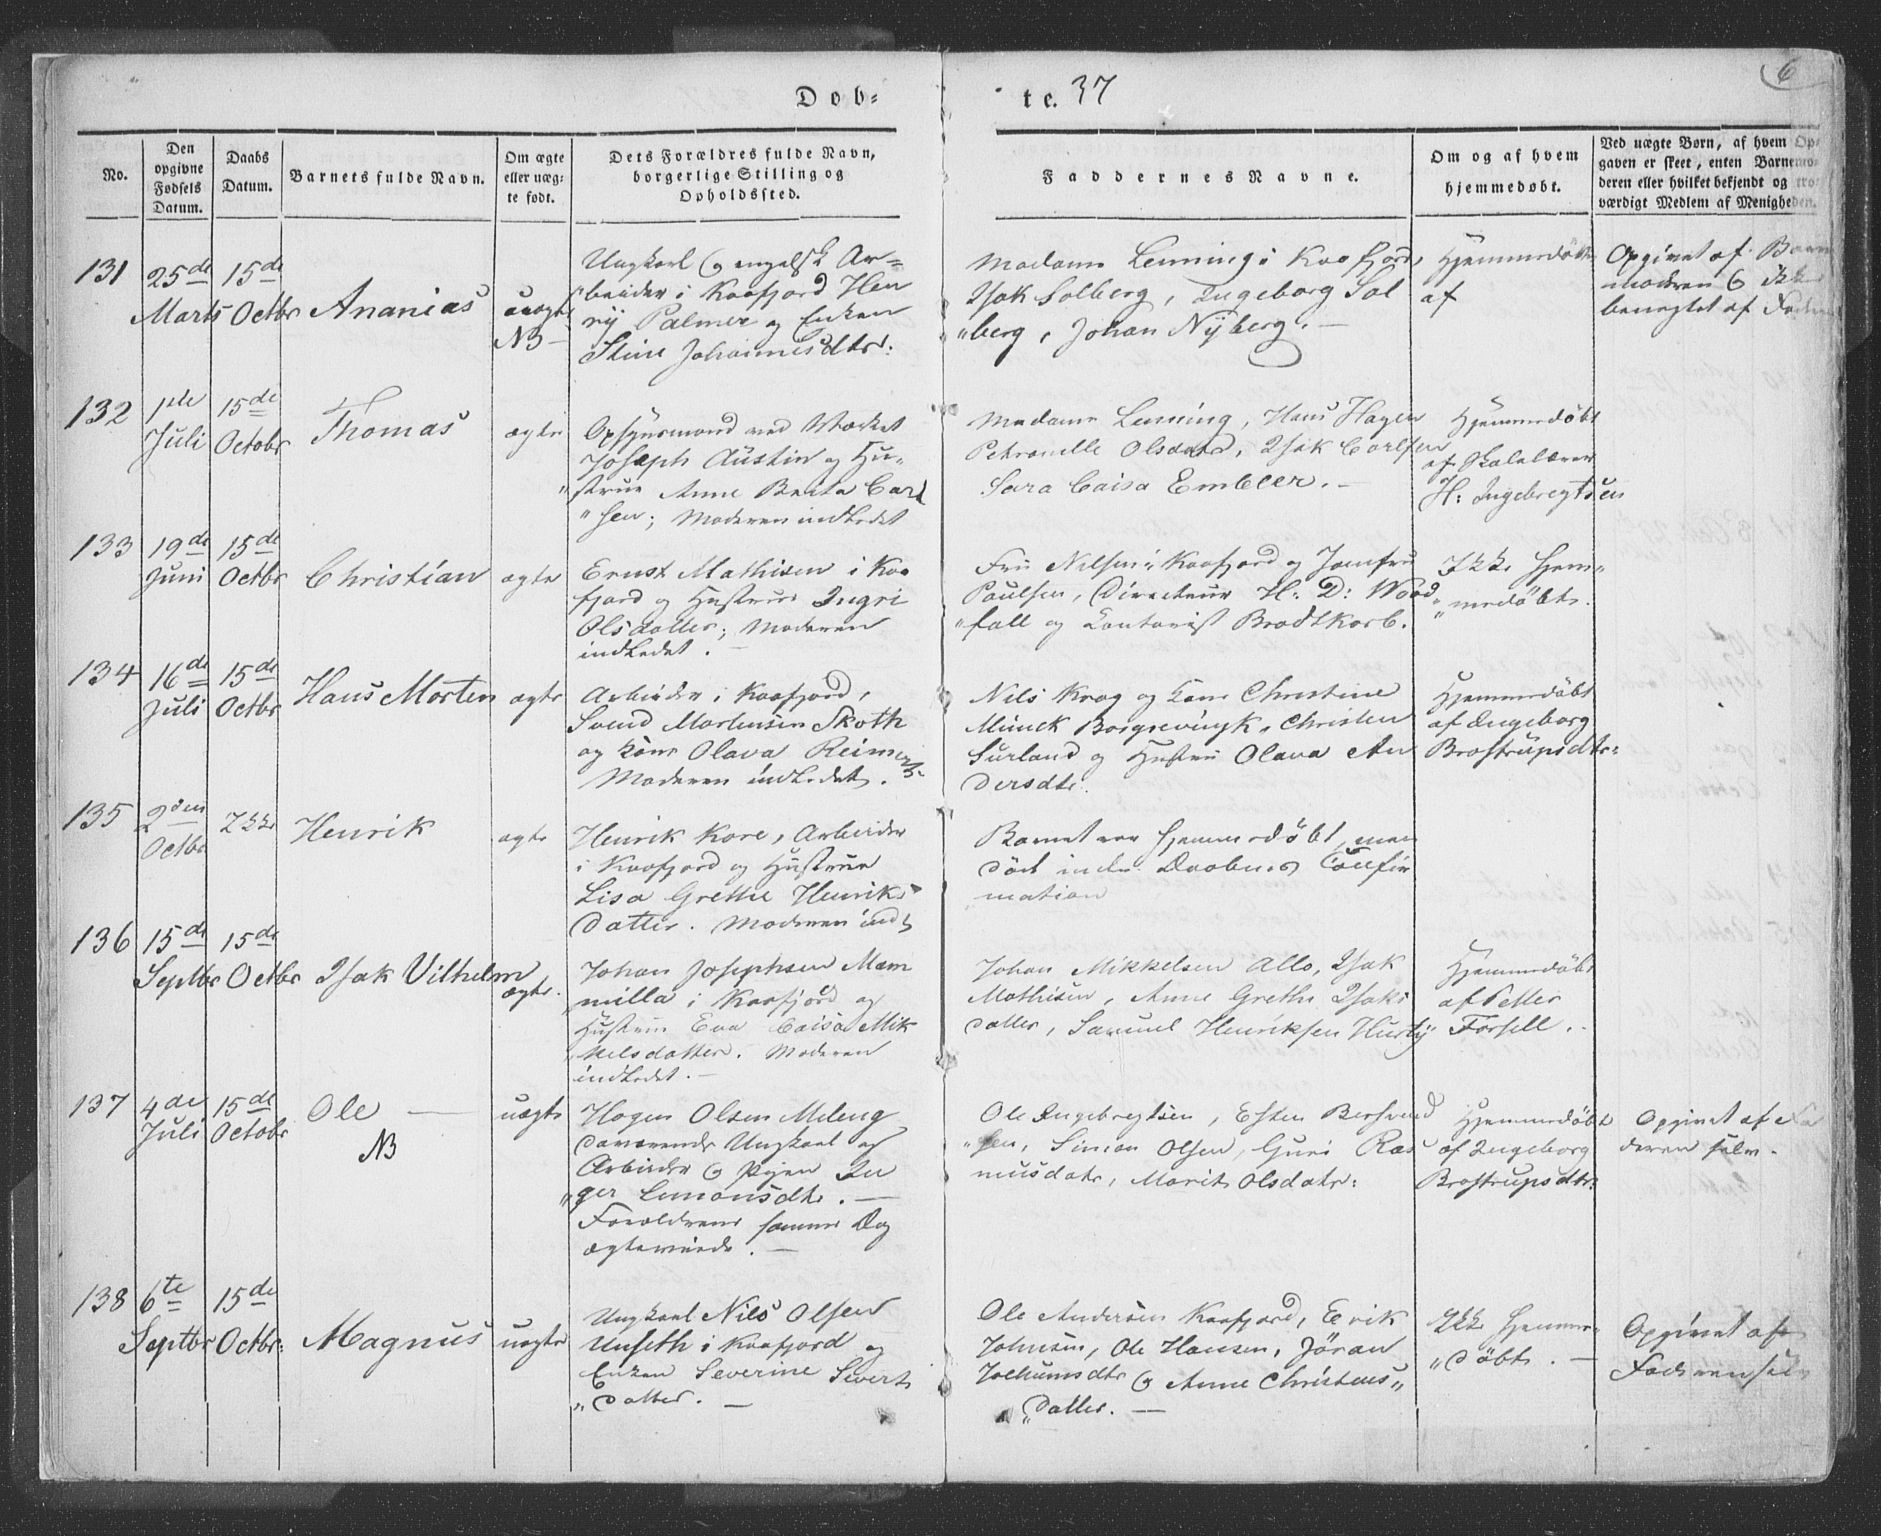 Døb=
te. 37
6
No.
Den opgivne Fødsels Datum.
Daabs Datum.
Barnets fulde Navn.
Om ægte eller uægte født.
Dets Forældres fulde Navn, borgerlige Stilling og Opholdssted.
Faddernes Navne.
Om og af hvem hjemmedøbt.
Ved uægte Børn, af hvem Opgaven er skeet, enten Barnemoderen eller hvilket bekjendt og troværdigt Medlem af Menigheden.
131
25de Marts
15de Octbr
Ananias
uægte NB
Ungkarl og engelsk Ar=
beider i Kaafjord Hen
ry Palmer og Enken
Stine Johannesdtr:
Madame Lenning i Kaafjord,
Isak Solberg, Ingeborg Sol
"berg, Johan Nÿberg. —
Hjemmedöbt
af
Opgivet af Barne
moderen & ikke
benegtet af Faderen
132
1ste Juli
15de Octobr
Thomas
ægte
Opsynsmand ved Værket
Joseph Aüstin og Hu-
"strue Anne Breta Carl
"sen; Moderen indledet
Madame Lenning, Hans Hagen
Petronelle Olsdatr, Isak Carlsen
Sara Caisa Embeer. —
Hjemmedöbt
af Skolelærer
H: Ingebregtsen
133
19de Juni
15de Octbr
Christian
ægte
Ernst Mathisen i Kaa
fjord og Hustrue Ingri
Olsdatter; Moderen
indledet. —
Fru Nilsen i Kaafjord og Jomfru
Paulsen, Directeur H: D: Wood
"fall og Contorist Brodtkorb.
Ikke Hjem-
"medöbt.
134
16de Juli
15de Octbr
Hans Morten
ægte
Arbeider i Kaafjord,
Svend Mortensen Skoth
og Kone Olava Reimers
Moderen indledet.
Nils Krag og Kone Christine
Münck Borgrevingk, Christen
Surland og Hustru Olava An
dersdtr
Hjemmedöbt
af Ingeborg
Brostrüpsdtr:
135
2den Octbr
Ikke
Henrik
ægte
Henrik Kore, Arbeider
i Kaafjord og Hustrue
Lisa Grethe Henriks
datter. Moderen indl
Barnet var hjemmedöbt, men
död inden Daabens Confir
mation
136
15de Septbr
15de Octbr
Isak Vilhelm
ægte.
Johan Josephsen Mam
milla i Kaafjord og
Hustrue Eva Caisa Mik
kelsdatter. Moderen
indledet. —
Johan Mikkelsen Allo, Isak
Mathisen, Anne Grethe Isaks
datter, Samuel Henriksen Hurtÿ
Hjemmedöbt
af Petter
Forsell.
137
4de Juli
15de Octobr
Ole —
NB
uægte
Hagen Olsen Meleng
daværende Ungkarl og
Arbeider & Pigen In
"ger Simonsdtr. —
Forældrene samme Dag
ægteviede. —
Ole Ingebregtsen, Esten Bersvend
"sen, Simon Olsen, Guri Ras
musdatr, Marit Olsdatr:
Hjemmedöbt
af Ingeborg
Brostrupsdtr:
Opgivet af Fa
deren selv.
138
6te Septbr
15de Octbr:
Magnus
uægte
Ungkarl Nils Olsen
Unseth i Kaafjord og
Enken Severine Siverts
"datter. —
Ole Andersen Kaafjord, Erik
Johnsen, Ole Hansen, Jöran
Jochumsdtr & Anne Christens"
"datter. —
Ikke Hjemme-
"döbt. —
Opgivet af
Faderen selv